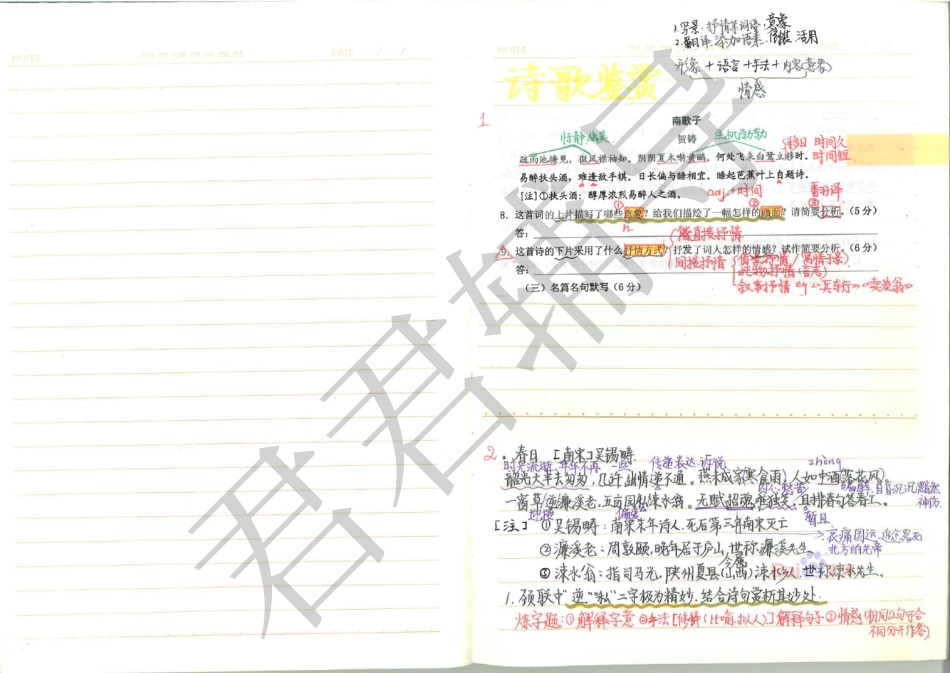 NOTES
DATE / /
NOTES
DATE / /
1.写景 抒情某词语,意象
2.翻译 添加语素 借鉴 活用
形象+语言+手法+内容(意象)
情感
诗歌鉴赏
1
南歌子
恬静幽美
贺铸
生机勃勃
移日 时间久
疏雨池塘见,微风襟袖知。阴阴夏木啭黄鹂。何处飞来白鹭立移时。
时间短
易醉扶头酒,难逢敌手棋。日长偏与睡相宜。睡起芭蕉叶上自题诗。
[注]①扶头酒:醇厚浓烈易醉人之酒。
adj.+时间
翻译
① ② ③
8.这首词的上片描写了哪些意象?给我们描绘了一幅怎样的画面?请简要分析。(5分)
n.
答:
直接抒情
9.这首诗的下片采用了什么抒情方式?抒发了词人怎样的情感?试作简要分析。(6分)
间接抒情
借景抒情/寓情于景
答:
托物抒情(言志)
叙事抒情 eg《兵车行》《卖炭翁》
(三)名篇名句默写(6分)
2.春日 [南宋]吴锡畴
时光流逝 年年不再 一些 传递表达 诉说
zhòng
韶光大半去匆匆,几许幽情递不通。燕未成家寒食雨,人如中酒落花风。
一窗草逆濂溪老,五亩园私涑水翁。无赋招魂酹独笑,且排春句答春工。
暂且
[注] ①吴锡畴:南宋末年诗人,死后第三年南宋灭亡
哀痛国运,追念冤死
北方的先帝
②濂溪老:周敦颐,晚年居于庐山,世称濂溪先生。
今属
③涑水翁:指司马光,陕州夏县(山西)涑水乡人,世称涑水先生。
1.颈联中"逆""私"二字极为精妙.结合诗句赏析其妙处.
炼字题:①解释字意 ②手法[修辞(比喻,拟人)]解释句子 ③情感(相同2句可合
不同分开作答)
君君辅导